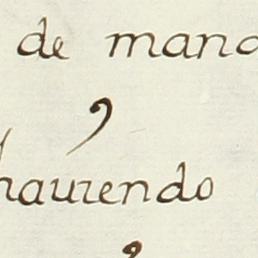 de mano
,
haurendo